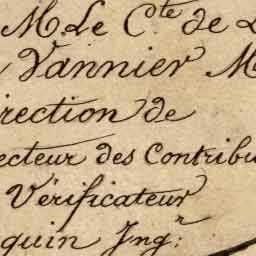 M. Le C.te de
Vannier M
irection de
ecteur des Contribu
Vérificateur
quin Ing.r